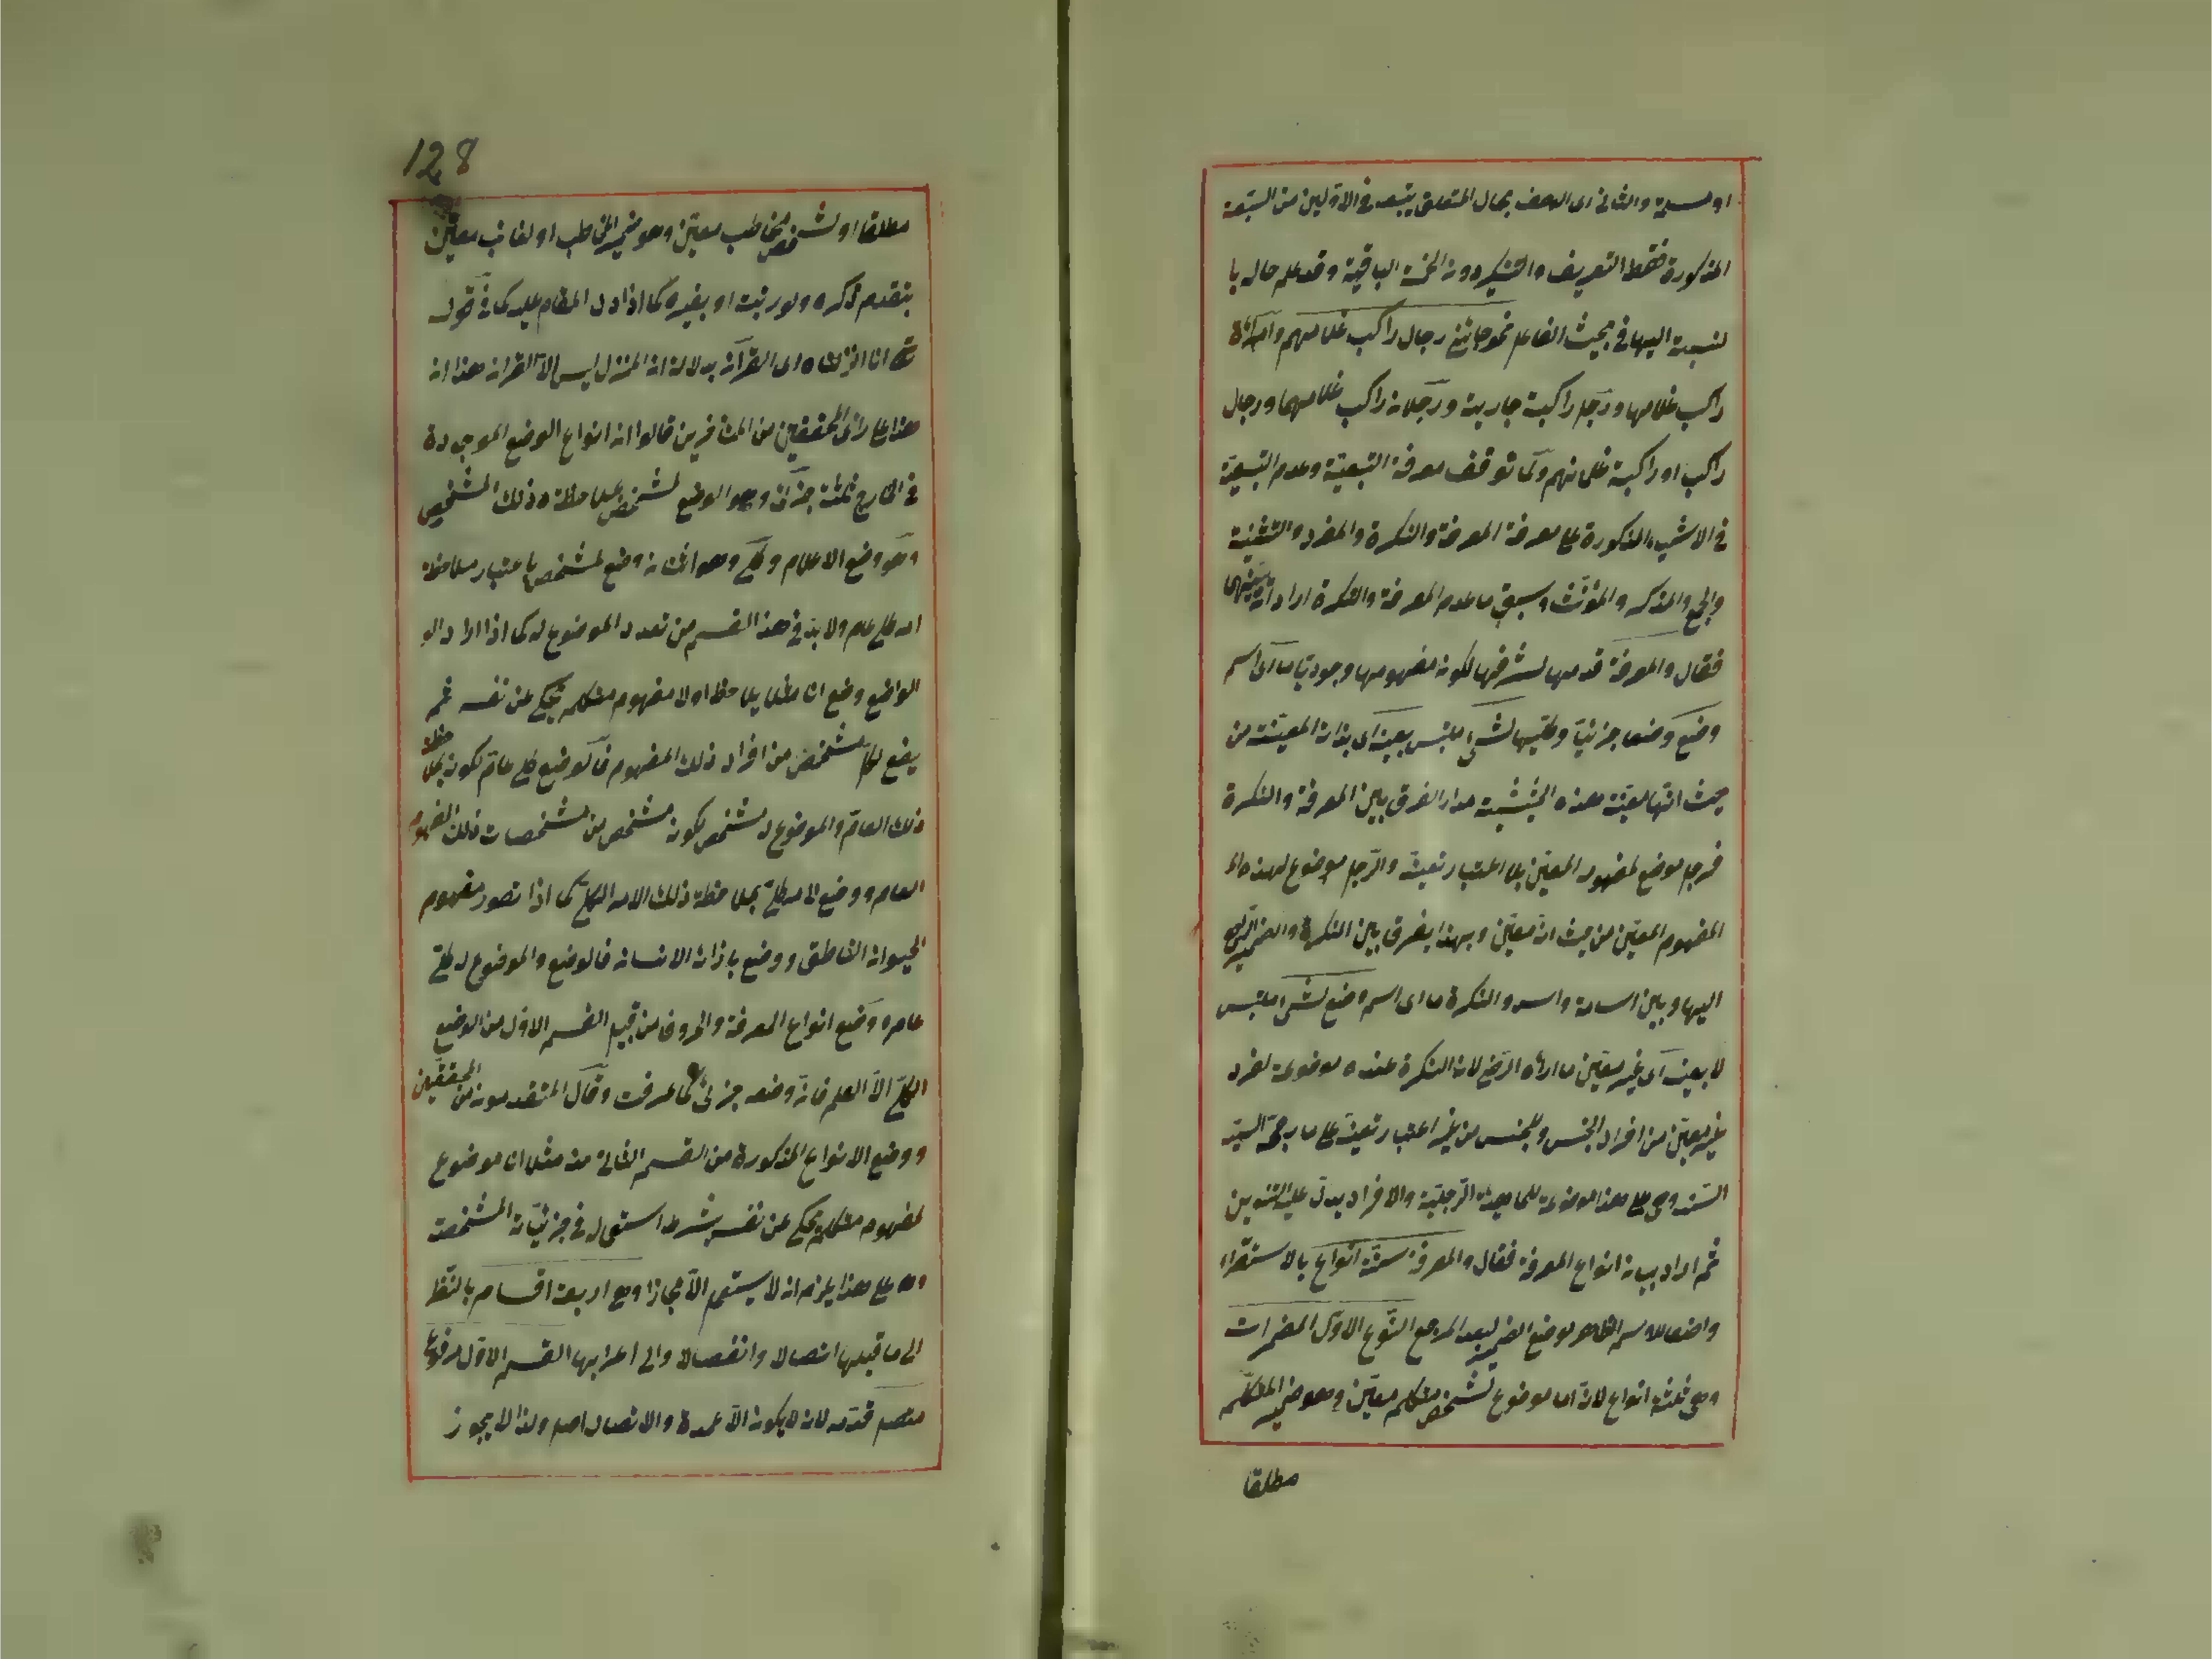 او مسلمة والثانى اى الوصف بحال المتعلق يتبعه فى الاولين من السبعة
المذكورة فقط التعريف والتنكير دون الخمسة الباقية وقد علم حاله با
لنسبة اليها فى بحث الفاعل نحو جائنى رجال راكب غلامهم وامرأة
راكب غلامها ورجل راكبة جاريته ورجلان راكب غلامهما ورجال
راكب او راكبة غلمانهم ولما توقف معرفة التبعية وعدم التبعية
فى الاشياء المذكورة على معرفة المعرفة والنكرة والمفرد والتثنية
والجمع والمذكر والمؤنث وسبق ما عدم المعرفة والنكرة اراد ان يبينهما
فقال والمعرفة قدمها لشرفها لكون مفهومها وجوديا ما اى اسم
وضع وضعا جزئيا وكليا لشئ ملتبس بعينه اى بذاته المعينة من
حيث انها معينة هذه الحيثية مدار الفرق بين المعرفة والنكرة
فرجل موضع لمفهومه المعين بلا اعتبار تعينه والرجل موضوع لهذا
المفهوم المعين من حيث انه معين وبهذا يفرق بين النكرة والضمير الراجع
اليها وبين اسامة واسد والنكرة ما اى اسم وضع لشئ ملتبس
لا بعينه اى غير معين ما اراه الرضى لان النكرة عنده موضوعة لفرد
غير معين من افراد الجنس وللجنس من غير اعتبار تعينه على ما رجحه السيد
السند وهى على هذا موضوعة للماهية الرجلية والافراد يدل عليه التنوين
ثم اراد بيان انواع المعرفة فقال والمعرفة ستة انواع بالاستقراء
واضعا للاسم الظاهر موضع الضمير لبعد المرجع النوع الاول المضمرات
وهى ثلثة انواع لانه اما موضوع لشخص متكلم معين وهو ضمير المتكلم
مطلقا
128
مطلقا او لشخص مخاطب معين وهو ضمير المخاطب او لغائب معين
بتقدم ذكره ولو رتبة او بغيره كما اذا دل المقام عليه كما فى قوله
تع انا انزلناه اى القرآن بدلالة ان المنزل ليس الا القرآن هذا ان
هذا على رأى المحققين من المتأخرين قالوا ان انواع الوضع الموجودة
فى الخارج ثلثة جزئى وهو الوضع لمشخص بملاحظة ذلك المشخص
وهو وضع الاعلام وكلى وهو اثنان وضع لمشخص باعتبار ملاحظة
امر كلى عام ولا بد فى هذا القسم من تعدد الموضوع له كما اذا اراد ال
الواضع وضع انا مثلا يلاحظ اولا مفهوم متكلم يحكى عن نفسه ثم
يضع لكل مشخص من افراد ذلك المفهوم فالوضع كلى عام لكونه بملاحظة
ذلك العام والموضوع له مشخص لكونه مشخص من مشخصات ذلك المفهوم
العام ووضع لامر كلى بملاحظة ذلك الامر الكلى كما اذا تصور مفهوم
الحيوان الناطق ووضع بازائه الانسان فالوضع والموضوع له كلى
عام وضع انواع المعرفة والحروف من قبيل القسم الاول من الوضع
الكلى الا العلم فانه وضعه جزئى كما عرفت وقال المتقدمون من المحققين
ووضع الانواع المذكورة من القسم الثانى منه مثلا انا موضوع
لمفهوم متكلم يحكى عن نفسه بشرط استعماله فى جزئياته المشخصة
وعلى هذا يلزم ان لا يستعمل الا مجازا وهى اربعة اقسام بالنظر
الى ما قبلها اتصالا وانفصالا والى اعرابها القسم الاول مرفوع
متصل قدمه لانه لا يكون الا عمدة والاتصال اصل ولذا لا يجوز